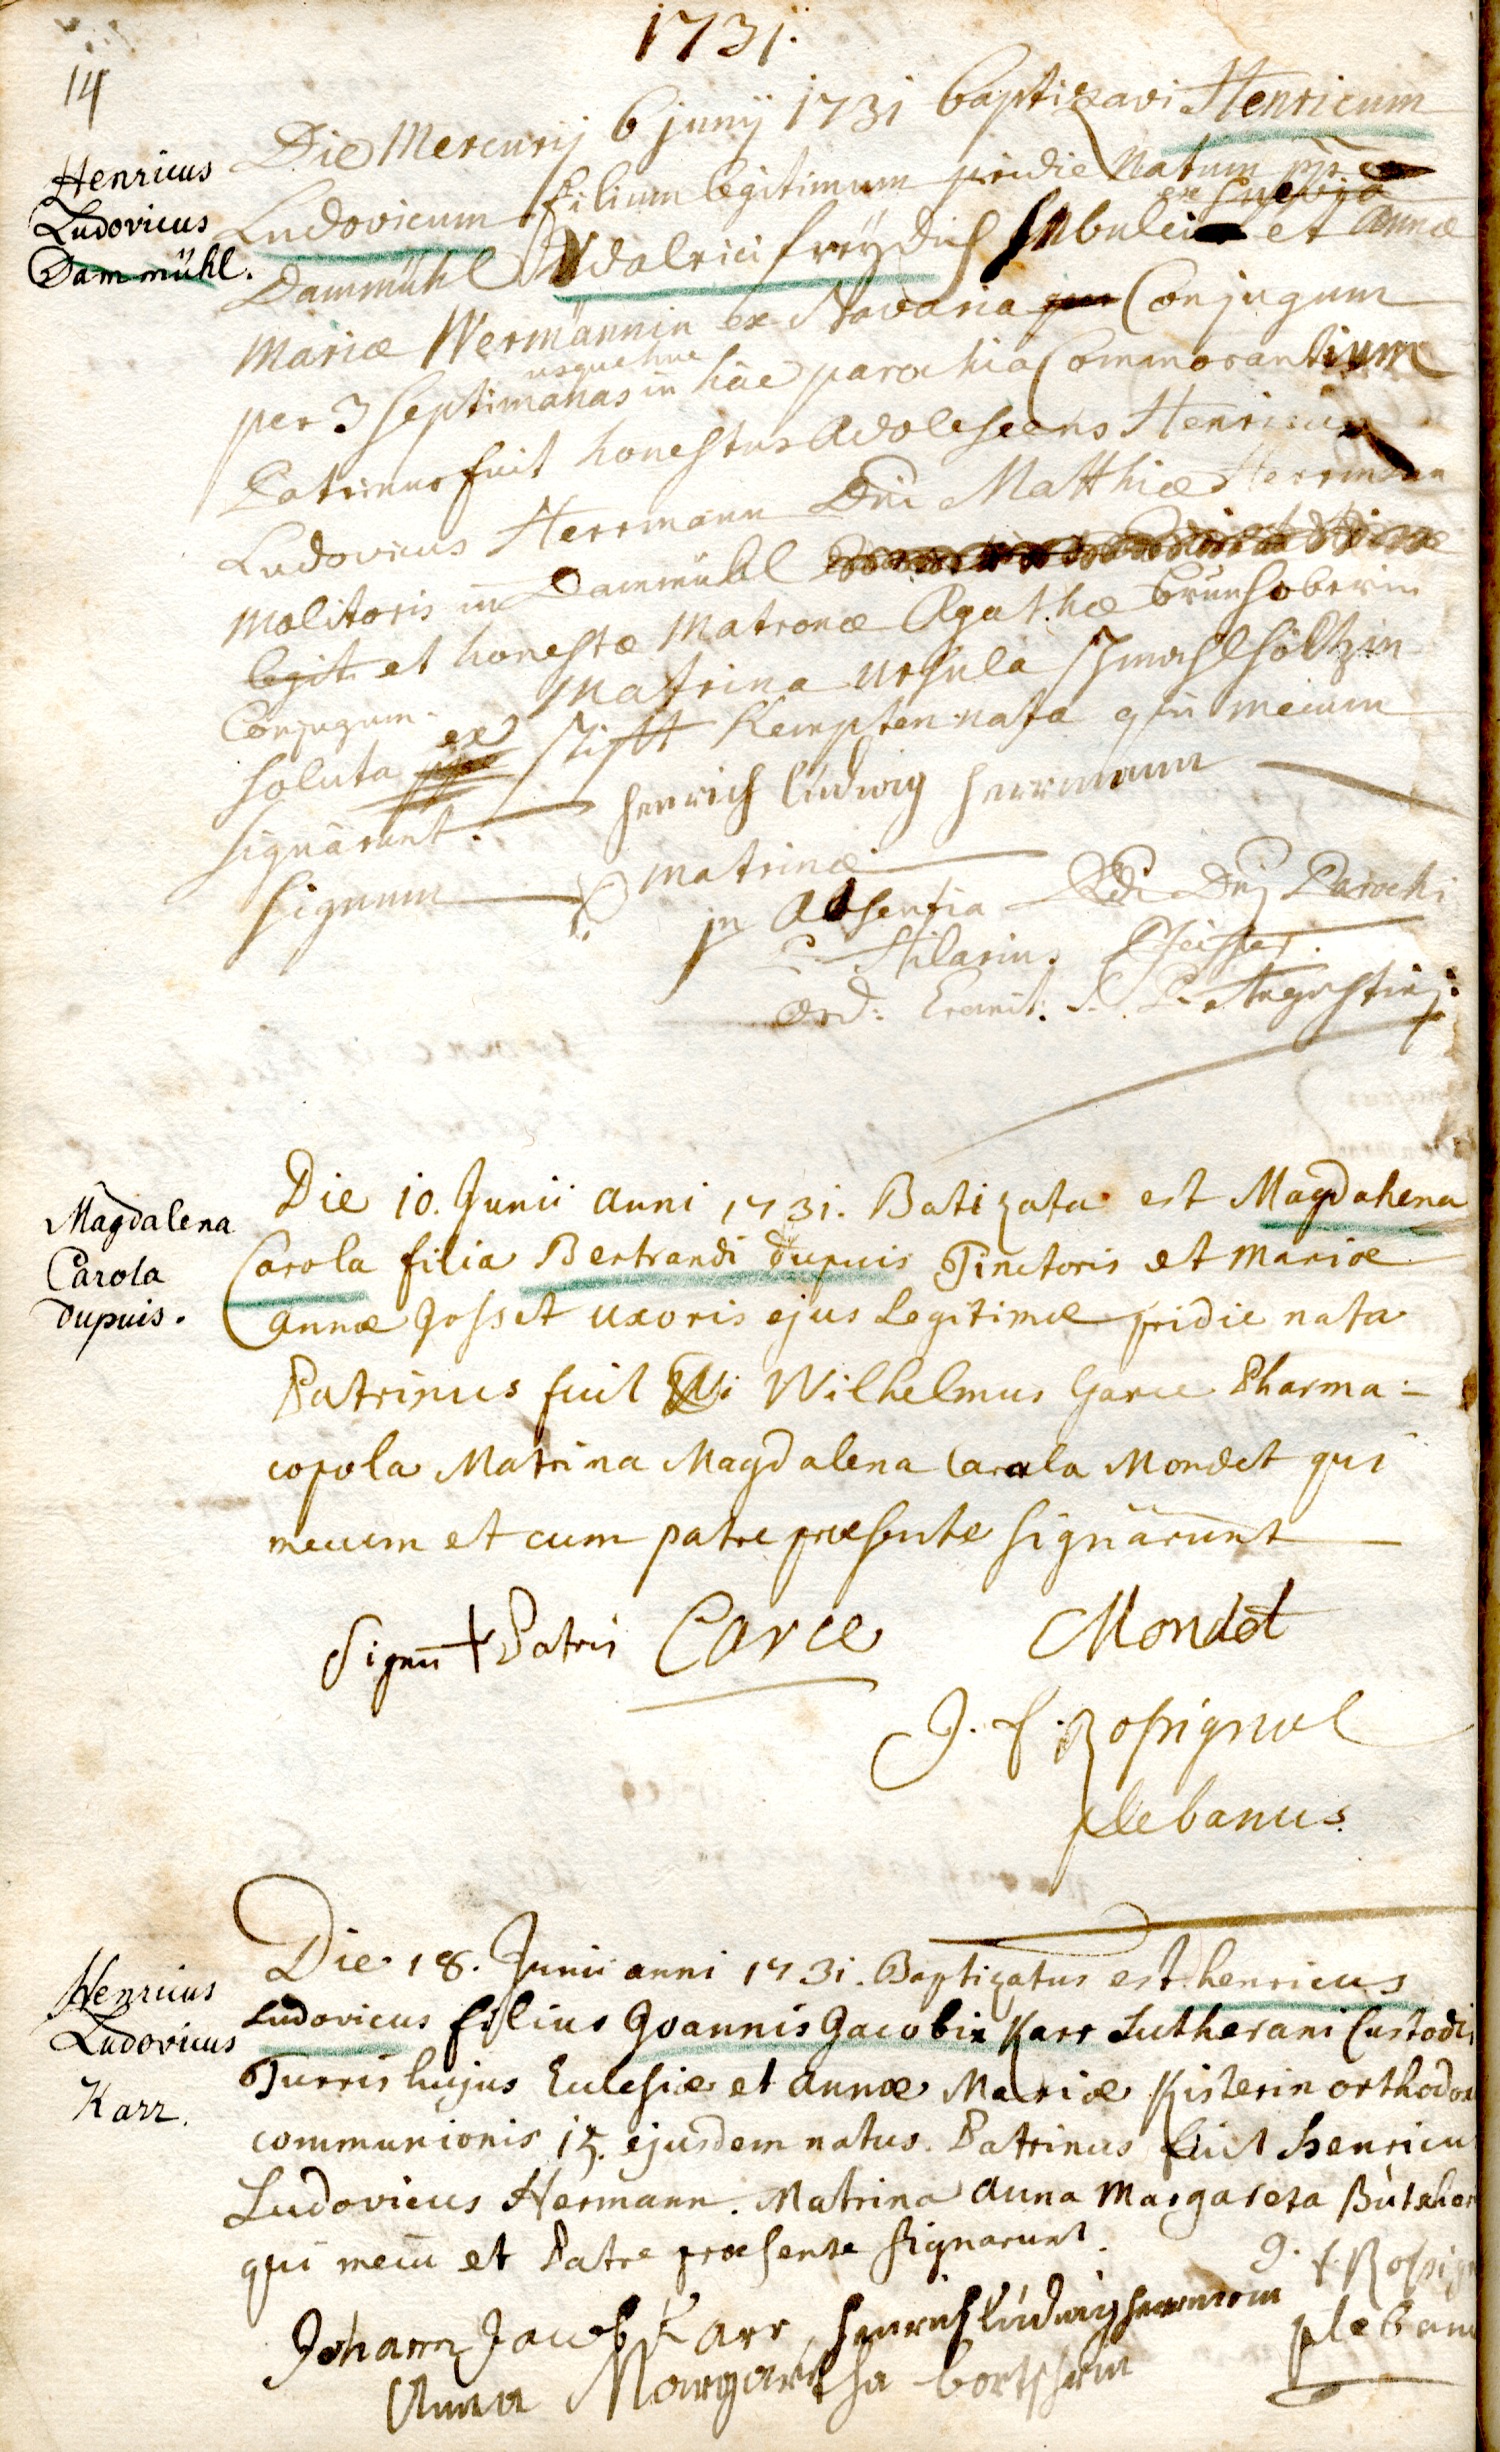 1731.
14
Henricus
Ludovicus
Dammühl.
Die Mercurij 6 junij 1731 baptizavi Henricum
Ludovicum filium legitimum pridie Natum
ex Suevia
Dammühl Udalrici freÿdich subulci et Annæ
Mariæ Wermännin ex Bavaria Conjugum
usque huc
per 3 septimanas in hac parochia Commorantium
Patrinus fuit honestus Adolescens Henricus
Ludovicus Herrmann Dni Matthiæ Herrmann
Molitoris in Dammühl
legit. et honestæ Matronæ Agathæ
Conjugum. Matrina Ursula
soluta ex stifft Kempten nata qui mecum
signârunt. henrich lúdwig herrmann
signum matrinæ
in Absentia Rdi Dnj Parochi
P. Hilarius
Ord: Eremit: S. P. Augustinj:
Magdalena
Carola
Dupuis.
Die 10. Junii anni 1731. Batizata est Magdahena
Carola filia Bertrandi Dupuis Tinctoris et Mariæ
annæ Josset uxoris ejus Legitimæ pridie nata
Patrinus fuit Wilhelmus Garce Pharma-
copola Matrina Magdalena Carola Mondet qui
mecum et cum patre præsente signârunt
Signū + Patris Carce Mondet
J. f. Rossignol
plebanus.
Henricus
Ludovicus
Karr.
Die 18. Junii anni 1731. Baptizatus est henricus
Ludovicus filius Joannis Jacobi Karr Lutherani Custodis
Turris hujus Eclesiæ et annæ Mariæ Kisterin orthodox
communionis 15. ejusdem natus. Patrinus fuit henricus
Ludovicus Hermann. Matrina anna Margareta
qui mecū et Patre præsente signarunt.
J. f. Rossign
pleban
Johann Jacob Karr henrich lúdwig herrmann
Anna Margaretha